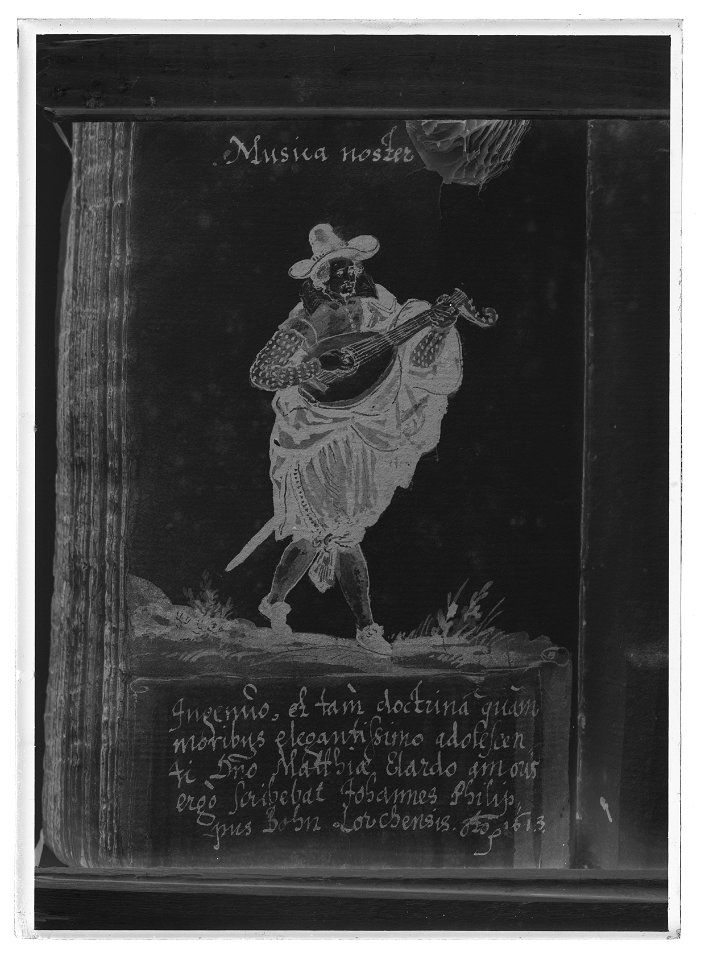 Musica noster
Ingenuo, et tam doctrina quam
moribus elegantissimo adolescen
ti Dño Matthiæ Elardo amoris
ergò scribebat Johannes Philip,
pus Bohn Lorchensis. 1613.